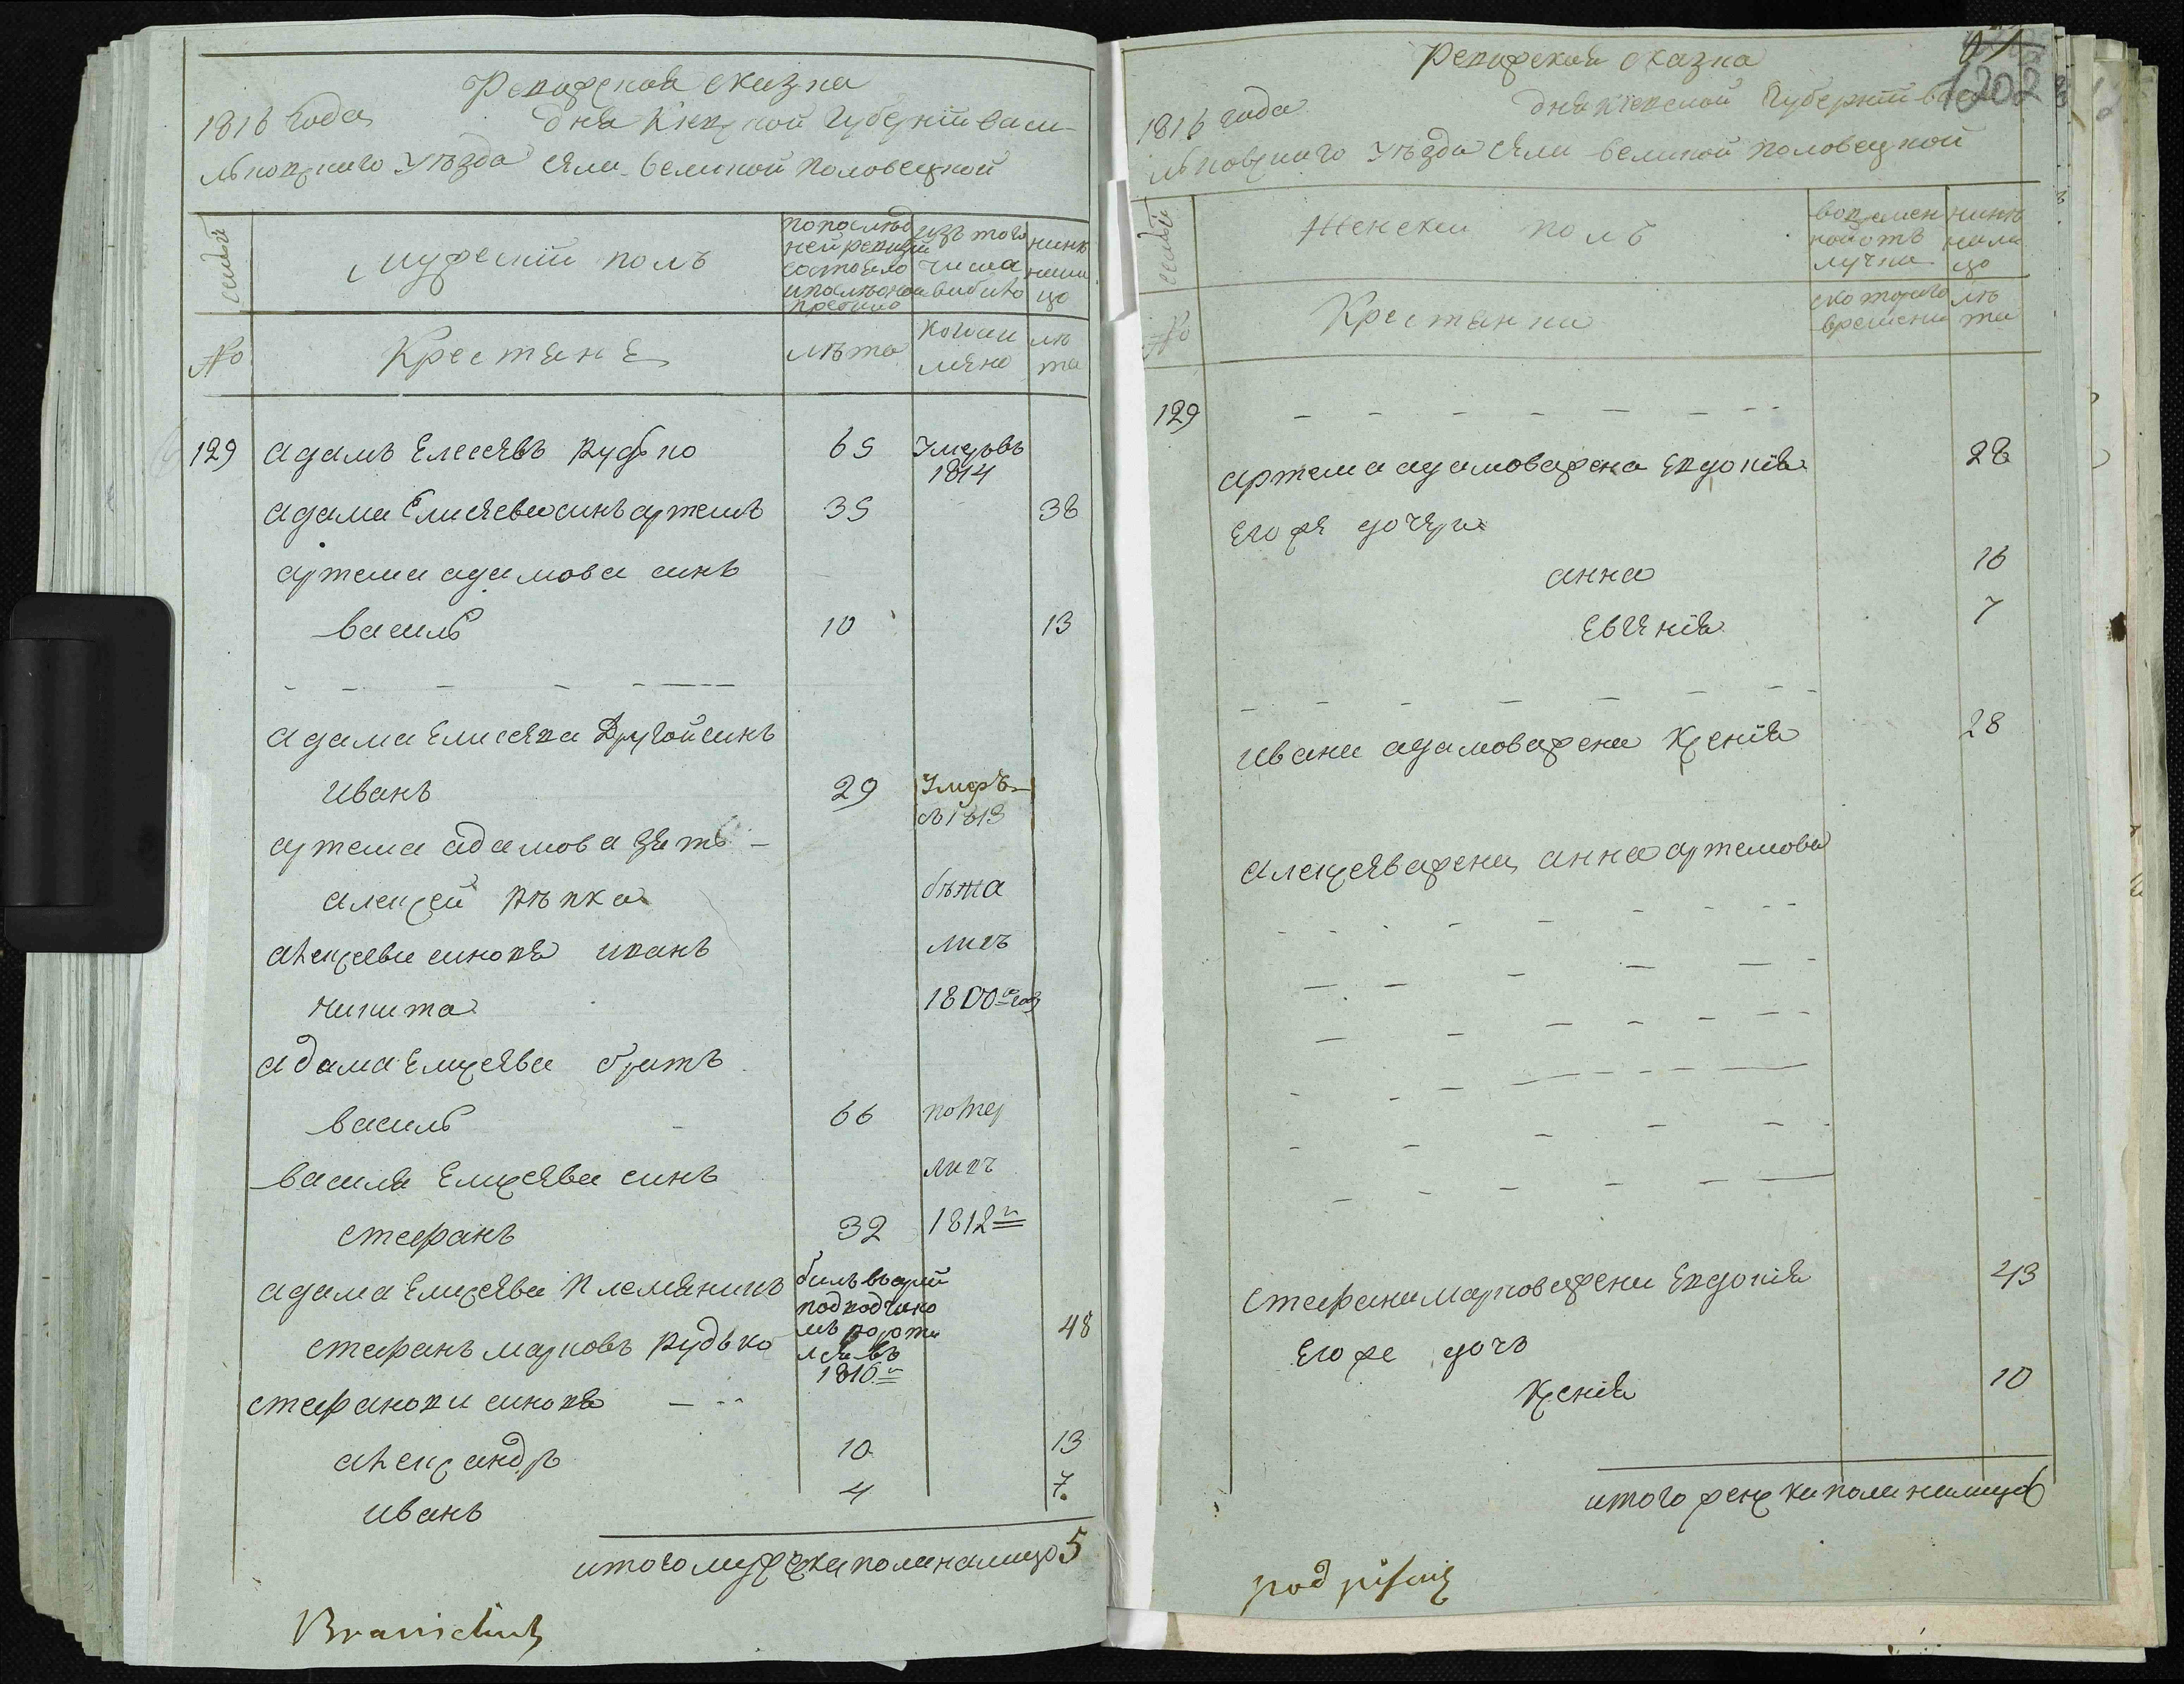 Ревизская сказка
1816 года дня Киевской Губернiи васи-
льковскаго Уѣзда Села великой половецкой
семей
мужескiй полъ
по послѣд
ней ревизiи
состояло
и послѣ оной
прибило
изъ того
числа
вибило
нинѣ
нали
цо
№
Крестяне
лѣта
когда и
мено
лѣ
та
129 адамъ Елесеевъ Рудько 65 Умеръ въ
1814
адама Елисеева синъ артемъ 35 38
артема адамова синъ
василь 10 13
адама Елисеева Другой синъ
иванъ 29 Умеръ
въ 1813
артема адамова зять
алексей рѣпка бѣжа
алексеева синовя иванъ лиъ
никита 1800го году
адама Елисеева братъ
василь 66 помер
василя Елисеева синъ
стефанъ 32 1812го
адама Елисеева племянникъ
стефанъ марковъ Рудько 48
1816го
стефанови синовя
александръ 10 13
иванъ 4 7.
итого мужеска пола налицо 5
Branicki
Ревизская сказка
1202
1816 года дня Киевской Губернiи васи
льковскаго Уѣзда Села великой половецкой
семей
Женски полъ
во времен
ной отъ
лучки
нинѣ
нали
цо
№
Крестянки
скоторого
времени
лѣ
та
129
артема адамова жена Евдокiя 28
Его же дочери
анна 16
Евгенiя 7
ивана адамова жена Ксенiя 28
алексея жена анна артемова
стефана маркова жена Евдокiя 43
Его же дочь
Ксенiя 10
итого женска пола налицо 6